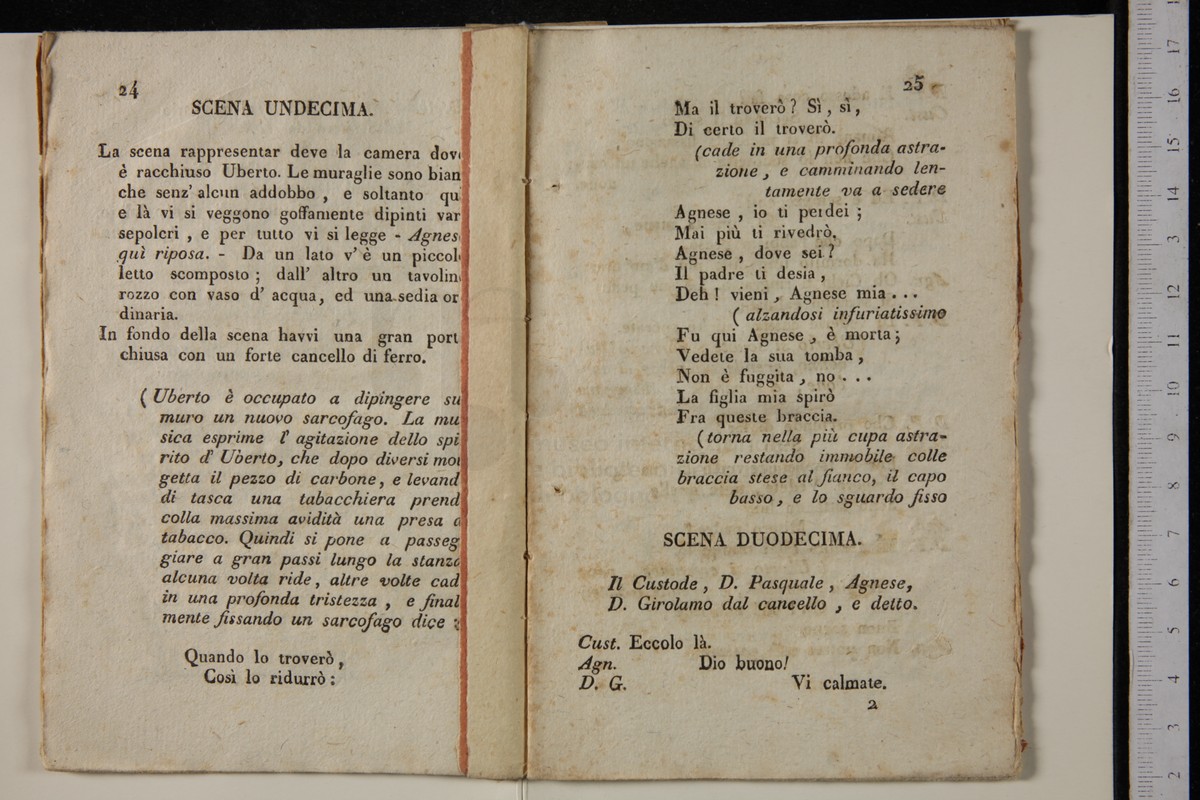 24
SCENA UNDECIMA.
La scena rappresentar deve la camera dov
è racchiuso Uberto. Le muraglie sono bian
che senz' alcun addobbo , e soltanto qu
e là vi si veggono goffamente dipinti var
sepolcri , e per tutto vi si legge - Agnes
quì riposa. - Da un lato v' è un piccol
letto scomposto ; dall' altro un tavolin
rozzo con vaso d' acqua, ed una sedia or
dinaria.
In fondo della scena havvi una gran port
chiusa con un forte cancello di ferro.
( Uberto è occupato a dipingere su
muro un nuovo sarcofago. La mu
sica esprime l' agitazione dello spi
rito d' Uberto, che dopo diversi mo
getta il pezzo di carbone, e levand
di tasca una tabacchiera prend
colla massima avidità una presa d
tabacco. Quindi si pone a passeg
giare a gran passi lungo la stanza
alcuna volta ride, altre volte cad
in una profonda tristezza , e final
mente fissando un sarcofago dice :
Quando lo troverò ,
Così lo ridurrò :
25
Ma il troverò ? Sì , sì ,
Di certo il troverò.
(cade in una profonda astra-
zione , e camminando len-
tamente va a sedere
Agnese , io ti perdei ;
Mai più ti rivedrò.
Agnese , dove sei ?
Il padre ti desia ,
Deh ! vieni , Agnese mia . . .
( alzandosi infuriatissimo
Fu qui Agnese , è morta ;
Vedete la sua tomba ,
Non è fuggita , no . . .
La figlia mia spirò
Fra queste braccia.
( torna nella più cupa astra-
zione restando immobile colle
braccia stese al fianco, il capo
basso , e lo sguardo fisso
SCENA DUODECIMA.
Il Custode , D. Pasquale , Agnese,
D. Girolamo dal cancello , e detto.
Cust. Eccolo là.
Agn. Dio buono!
D. G. Vi calmate.
2
17
16
15
14
13
12
11
10
9
8
7
6
5
4
3
2